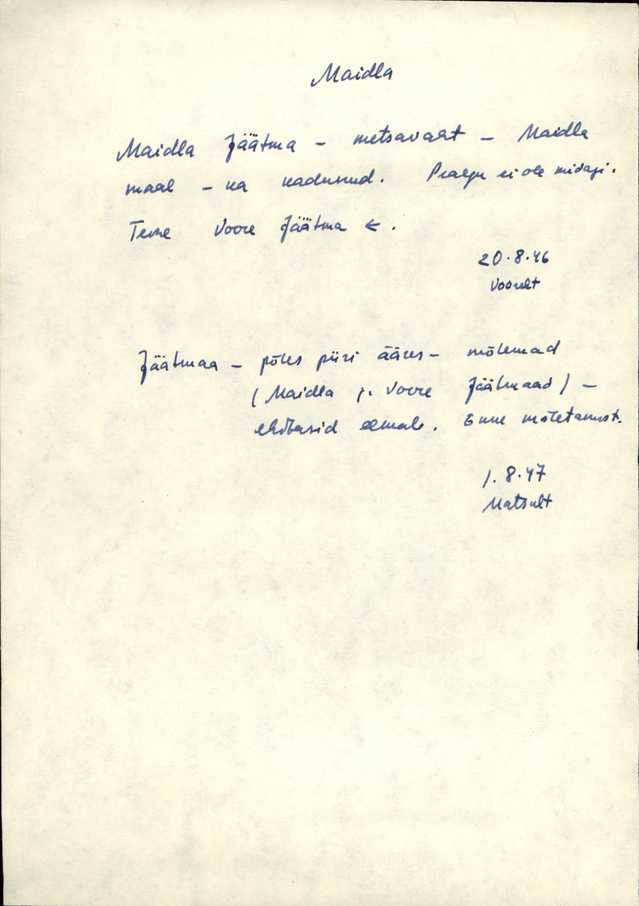 Maidla
Maidla Jäätma – metsavaht – Maidla
maal – ka kadunud. Praegu ei ole midagi.
Teine Voore Jäätma ←.
20.8.46
Voorelt
Jäätmaa – põles piiri ääres – mõlemad
(Maidla ja Voore Jäätmaad) –
eemale. Enne mõletamist.
1.8.47
Matsilt